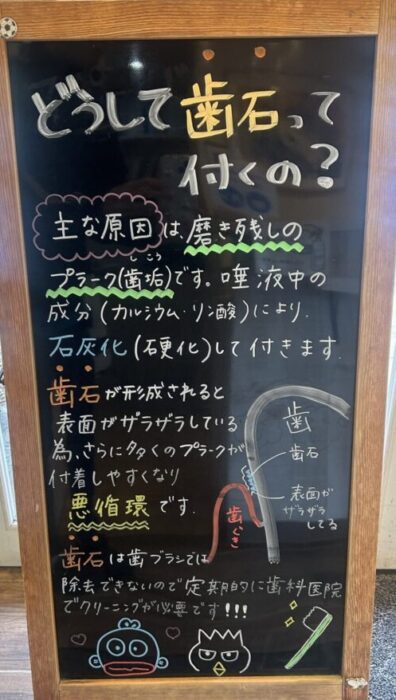 どうして歯石って
付くの?
主な原因は、磨き残しの
プラーク(歯垢)です。唾液中の
しこう
成分(カルシウム・リン酸)により
石灰化(硬化)して付きます。
歯石が形成されると
表面がザラザラしている
為、さらに多くのプラークが
付着しやすくなり
悪循環です。
歯
歯石
表面が
ザラザラ
してる
歯ぐき
歯石は歯ブラシでは
除去できないので定期的に歯科医院
でクリーニングが必要です!!!